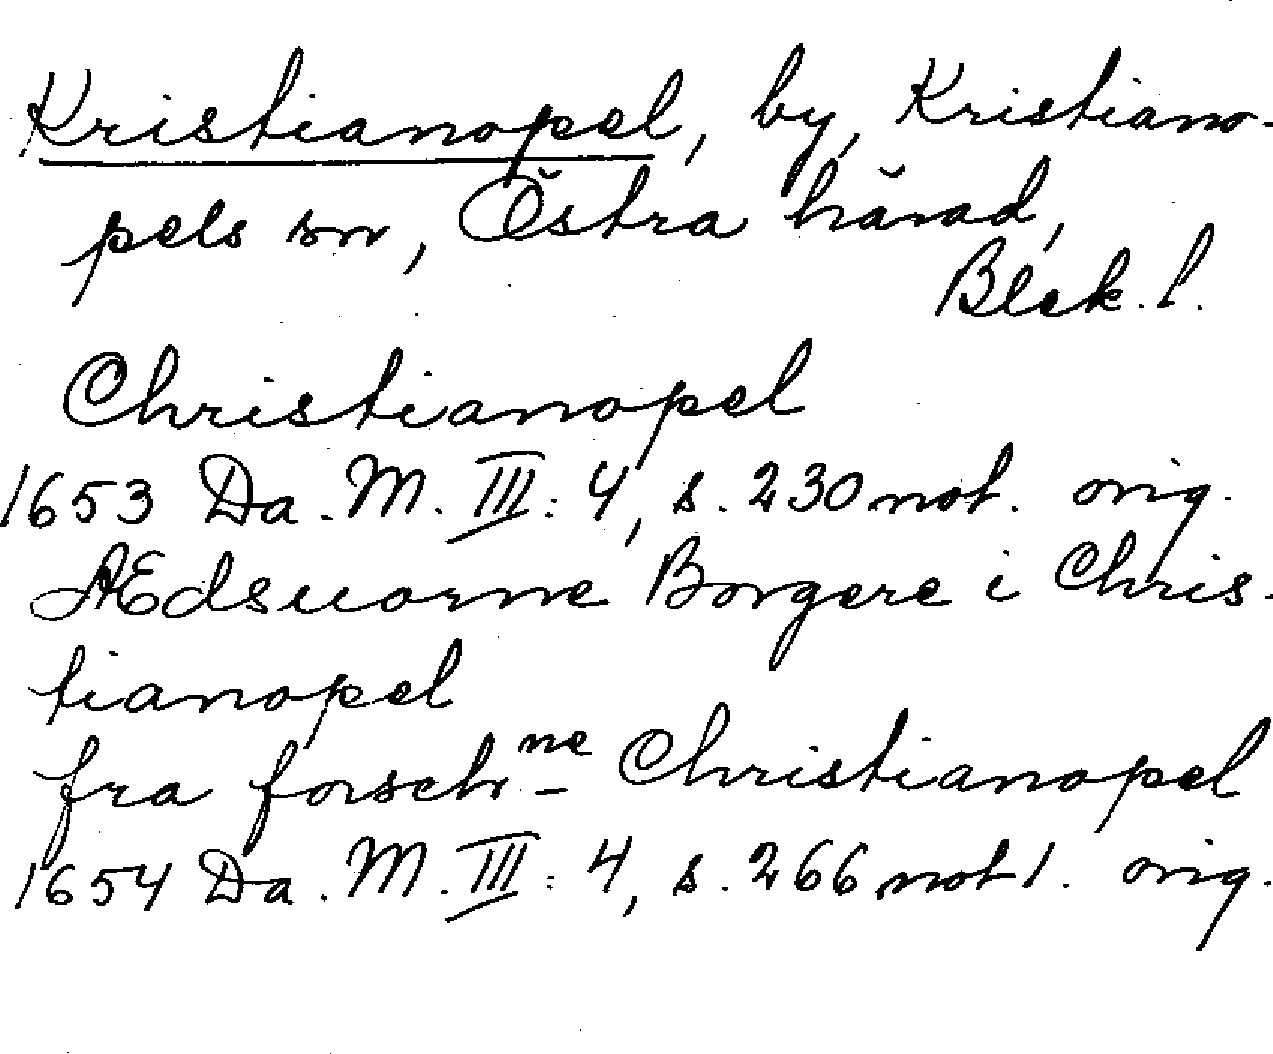 Kristianopel, by, Kristiano-
pels sn, Östra härad,
Blek. l.
Christianopel
1653 Da. M. III: 4, s. 230 not. orig.
AEdsuorne Borgere i Chris-
tianopel
fra forschrne Christianopel
1654 Da. M. III: 4, s. 266 not 1. orig.